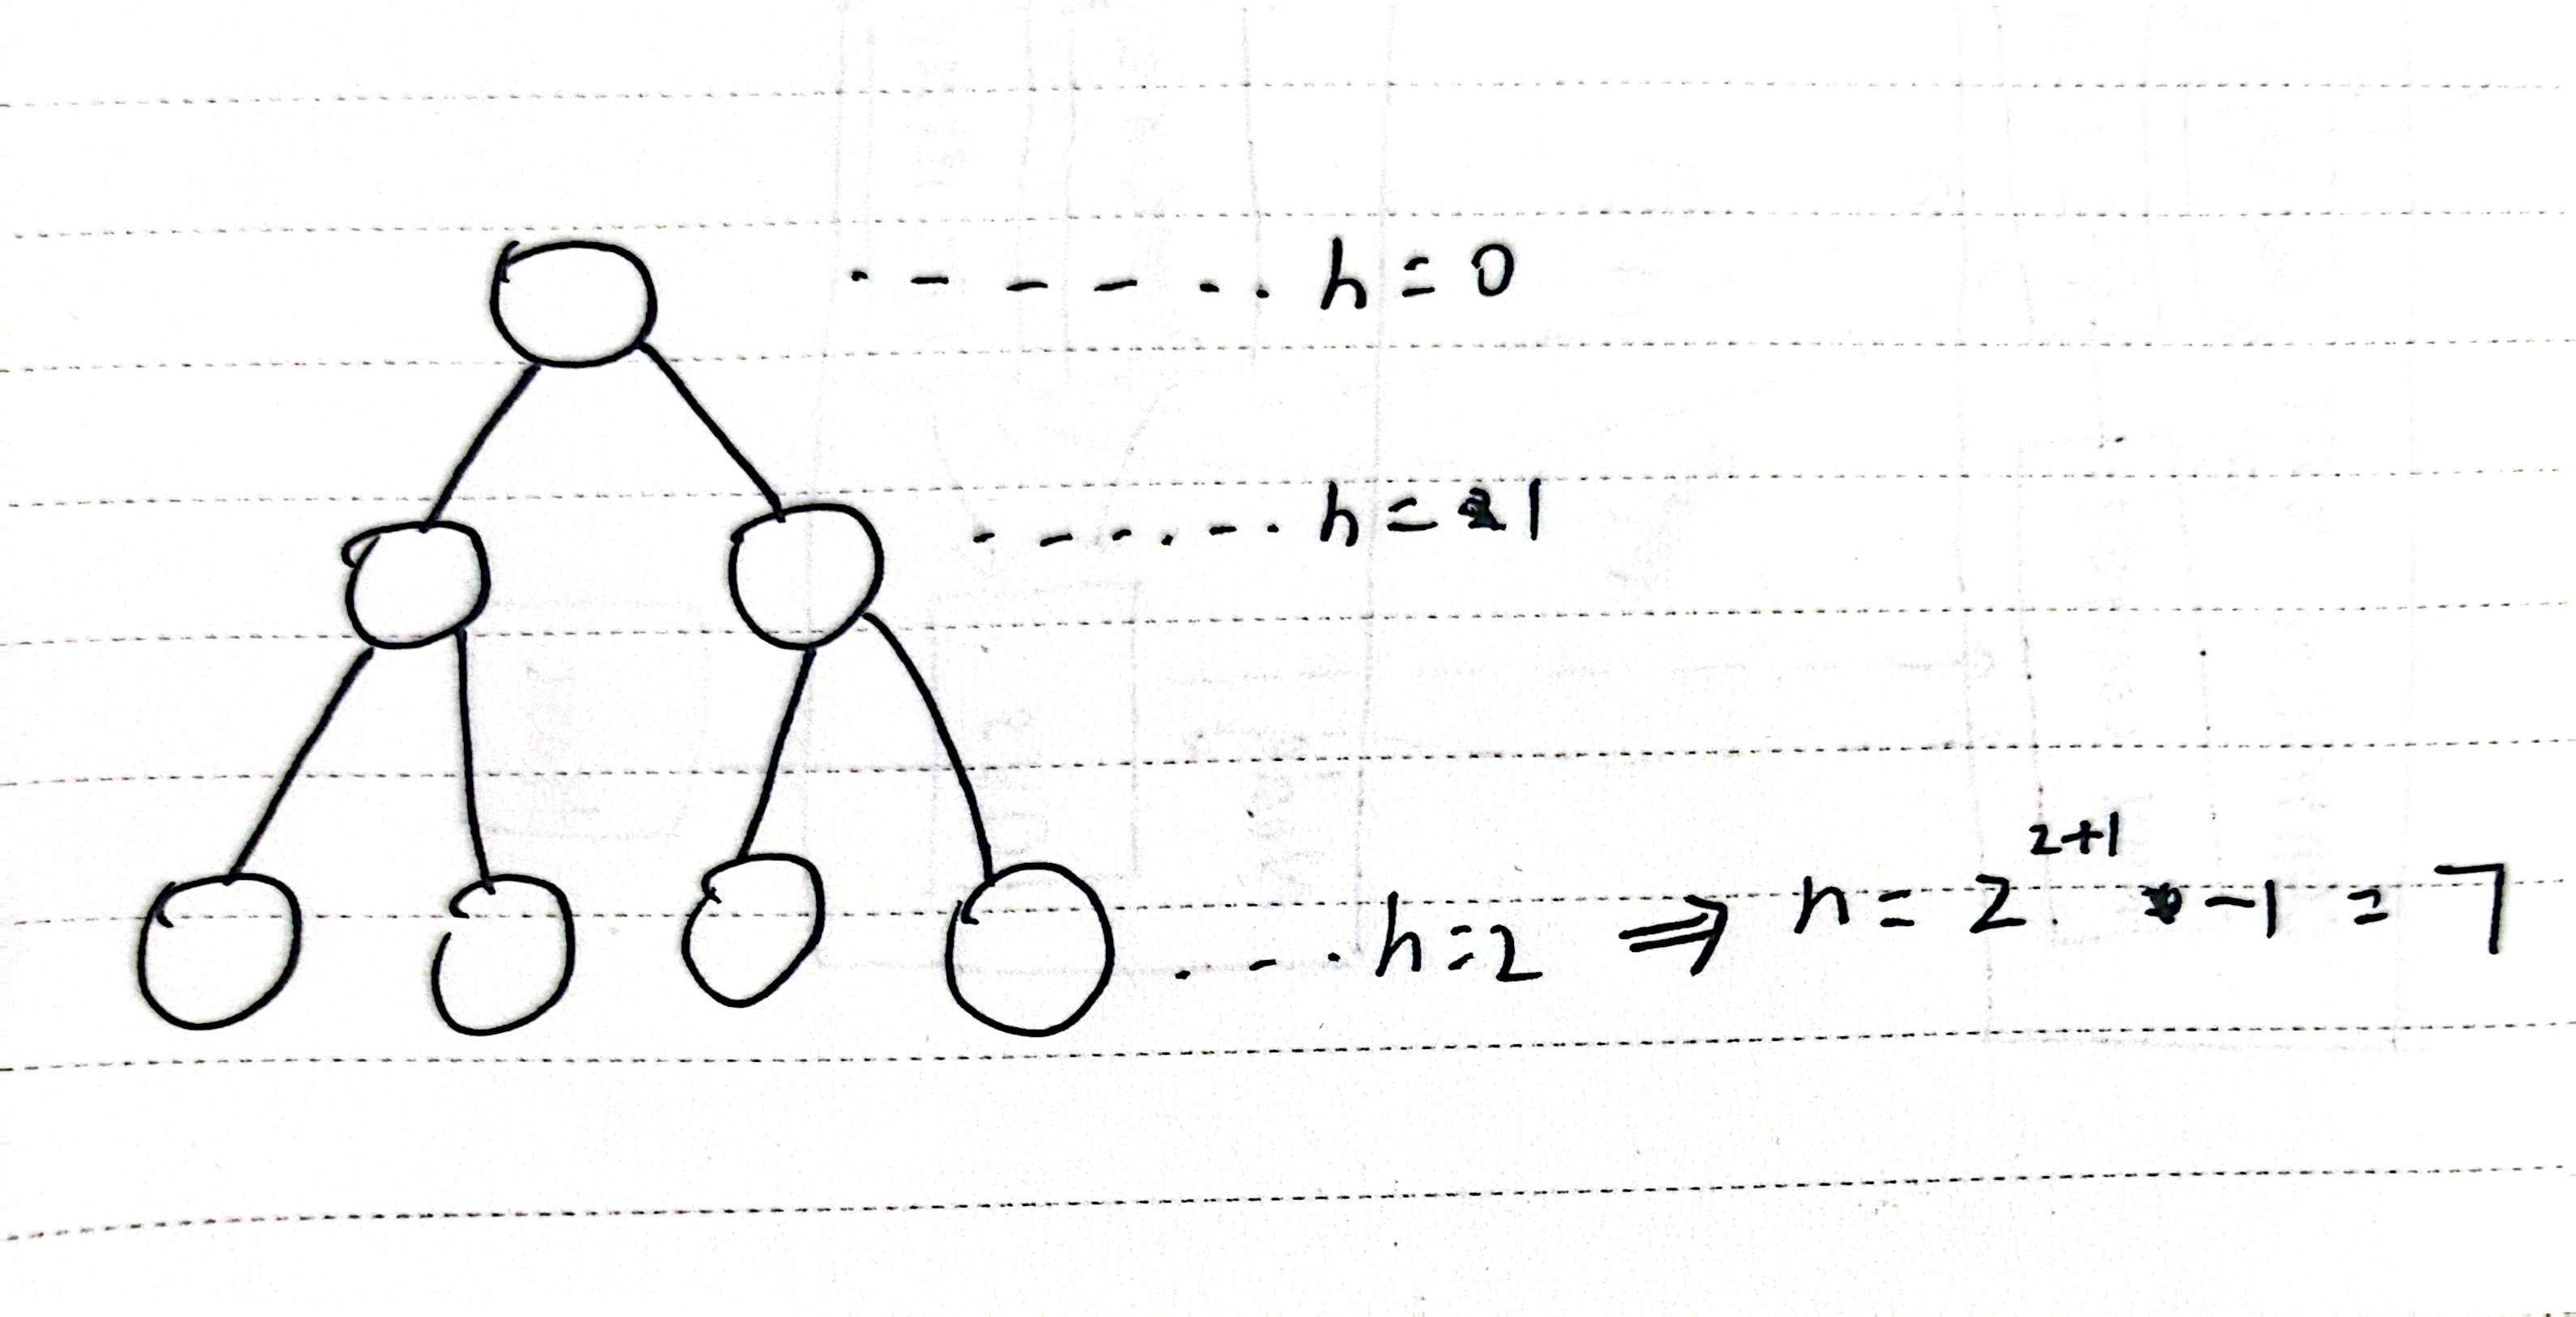 h = 0
h = 1
h = 2 ⇒ n = 2^{2+1} - 1 = 7